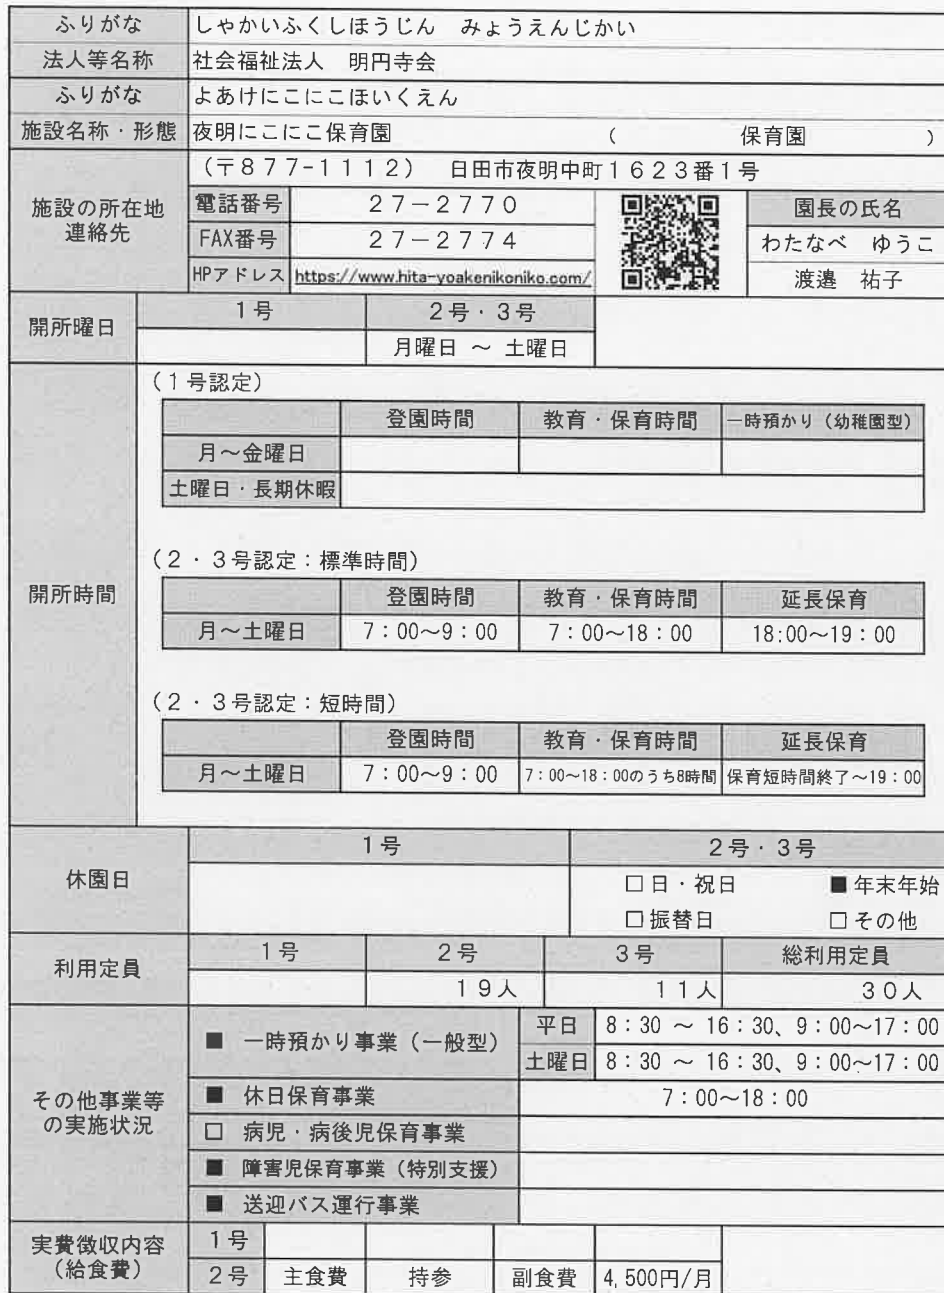 ふりがな しゃかいふくしほうじん　みょうえんじかい
法人等名称 社会福祉法人　明円寺会
ふりがな よあけにこにこほいくえん
施設名称・形態 夜明にこにこ保育園 （ 保育園 ）
施設の所在地
連絡先
（〒８７７-１１１２）　日田市夜明中町１６２３番１号
電話番号 ２７－２７７０
FAX番号 ２７－２７７４
HPアドレス https://www.hita-yoakenikoniko.com/
園長の氏名
わたなべ　ゆうこ
渡邉　祐子
開所曜日
１号 ２号・３号
月曜日 ～ 土曜日
開所時間
（１号認定）
登園時間 教育・保育時間 一時預かり（幼稚園型）
月～金曜日
土曜日・長期休暇
（２・３号認定：標準時間）
登園時間 教育・保育時間 延長保育
月～土曜日 7：00～9：00 7：00～18：00 18:00～19：00
（２・３号認定：短時間）
登園時間 教育・保育時間 延長保育
月～土曜日 7：00～9：00 7：00～18：00のうち8時間 保育短時間終了～19：00
休園日
１号 ２号・３号
□日・祝日 ■年末年始
□振替日 □その他
利用定員
１号 ２号 ３号 総利用定員
１９人 １１人 ３０人
その他事業等
の実施状況
■ 一時預かり事業（一般型） 平日 8：30 ～ 16：30、9：00～17：00
土曜日 8：30 ～ 16：30、9：00～17：00
■ 休日保育事業 7：00～18：00
□ 病児・病後児保育事業
■ 障害児保育事業（特別支援）
■ 送迎バス運行事業
実費徴収内容
（給食費）
１号
２号 主食費 持参 副食費 4,500円/月